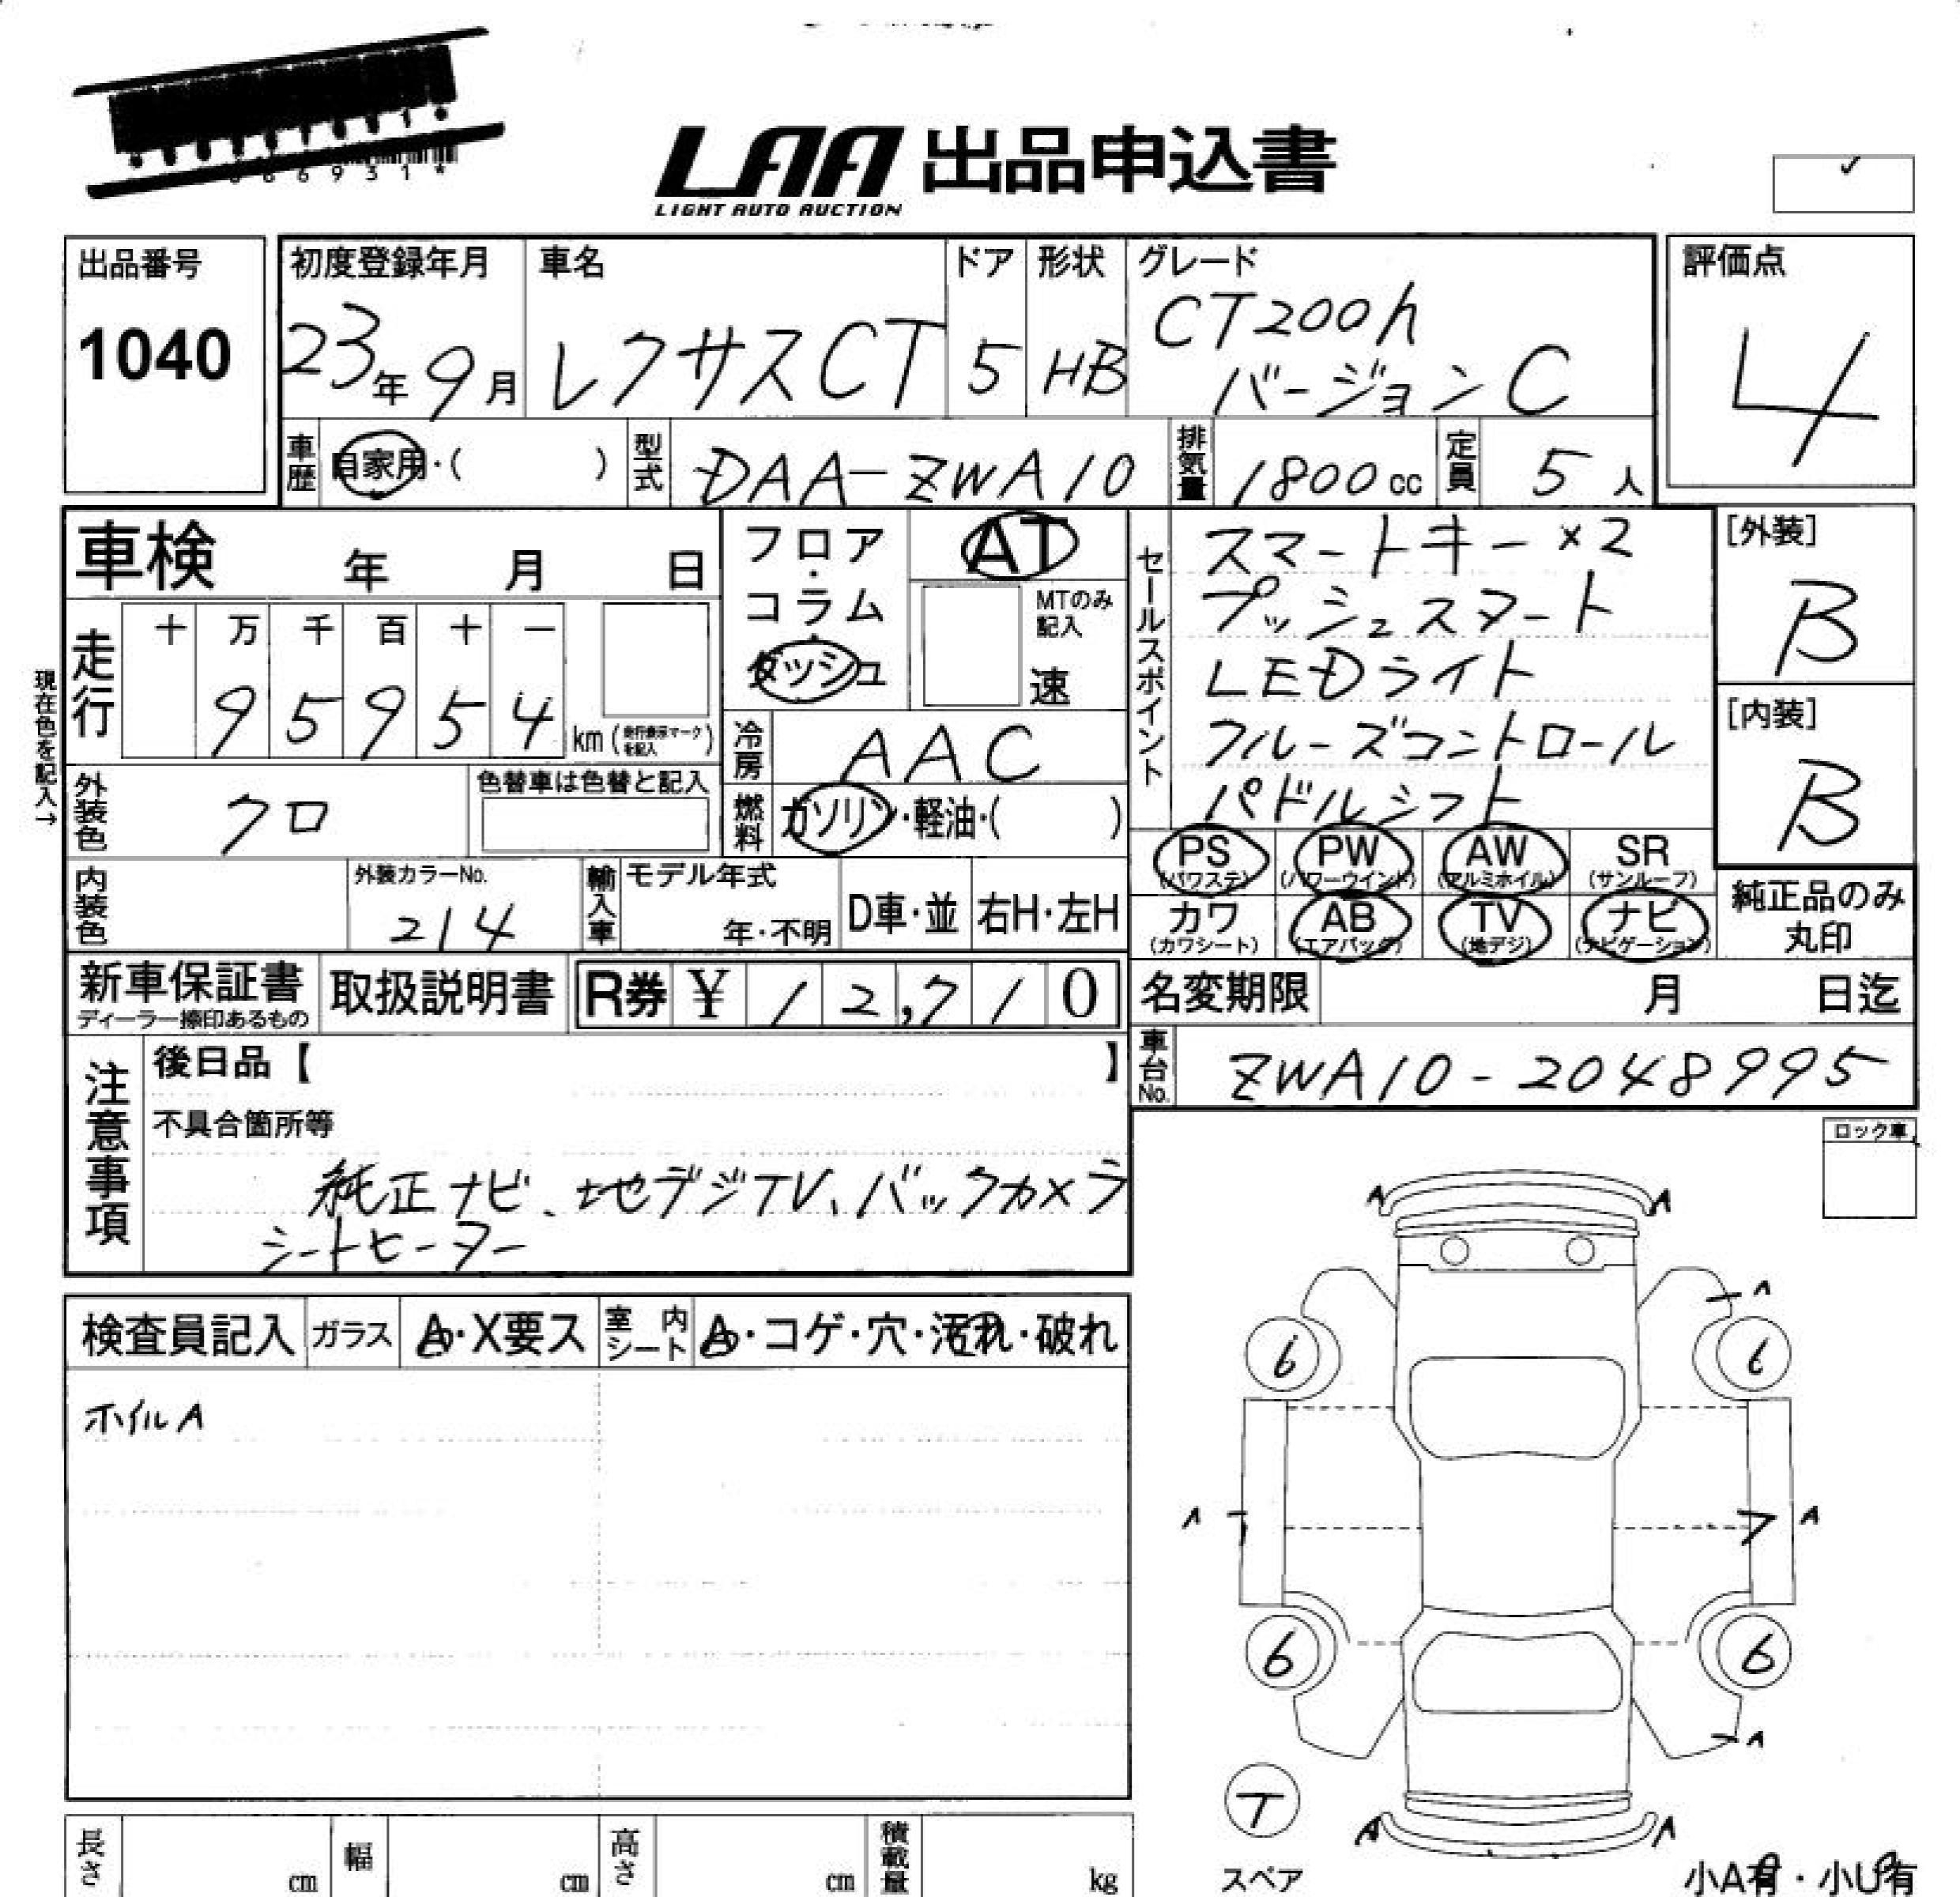 6 6 9 3 1 *
LAA 出品申込書
LIGHT AUTO AUCTION
出品番号
1040
初度登録年月
23年9月
車名
レクサスCT
ドア
5
形状
HB
グレード
CT200h
バージョンC
評価点
4
車歴
自家用・( )
型式
DAA-ZWA10
排気量
1800cc
定員
5人
車検 年 月 日
フロア・コラム・ダッシュ
AT
MTのみ記入
速
セールスポイント
スマートキー×2
プッシュスタート
LEDライト
クルーズコントロール
パドルシフト
[外装]
B
[内装]
B
現在色を記入→
走行
十 万 千 百 十 一
9 5 9 5 4
km(走行表示マークを記入)
冷房
AAC
外装色
クロ
色替車は色替と記入
燃料
ガソリン・軽油・( )
PS PW AW SR
(パワステ) (パワーウインド) (アルミホイル) (サンルーフ)
カワ AB TV ナビ
(カワシート) (エアバッグ) (地デジ) (ナビゲーション)
純正品のみ
丸印
内装色
外装カラーNo.
214
輸入車
モデル年式
年・不明
D車・並
右H・左H
新車保証書
ディーラー捺印あるもの
取扱説明書
R券 ¥ 12,710
名変期限 月 日迄
車台No.
ZWA10-2048995
注意事項
後日品【 】
不具合箇所等
純正ナビ、地デジTV、バックカメラ
シートヒーター
ロック車
検査員記入
ガラス
A・X要ス
室内シート
A・コゲ・穴・汚れ・破れ
ホイルA
A A
A
6 6
A A
6 6
A
T
スペア
A A
小A有・小U有
長さ cm
幅 cm
高さ cm
積載量 kg